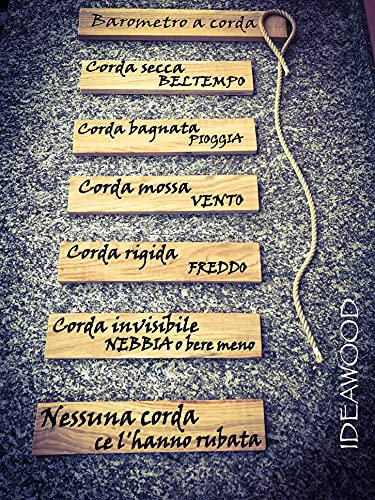 Barometro a corda
Corda secca
BELTEMPO
Corda bagnata
PIOGGIA
Corda mossa
VENTO
Corda rigida
FREDDO
Corda invisibile
NEBBIA o bere meno
Nessuna corda
ce l'hanno rubata
IDEAWOOD